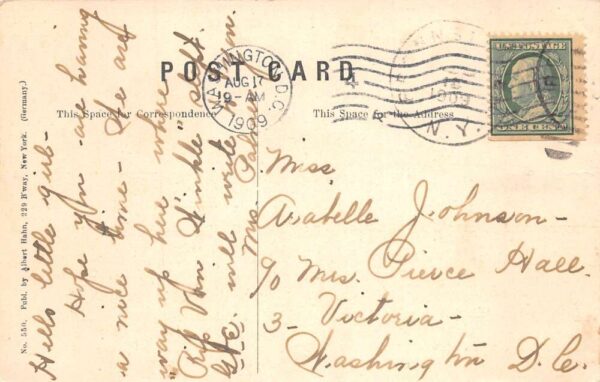 POST CARD
This Space for Correspondence
This Space for the Address
No. 550. Publ. by Albert Hahn, 229 B'way, New York. (Germany.)
Hello little girl-
Hope you are having
a nice time- We are
way up here where
"Rip Van Winkle" slept.
Etc. will write soon.
Mrs.
WASHINGTON, D.C.
AUG 17
9-AM
1909
1909
N.Y.
U.S. POSTAGE
ONE CENT
Miss
Arabelle Johnson-
c/o Mrs. Pierce Hall.
3- Victoria-
Washington D.C.